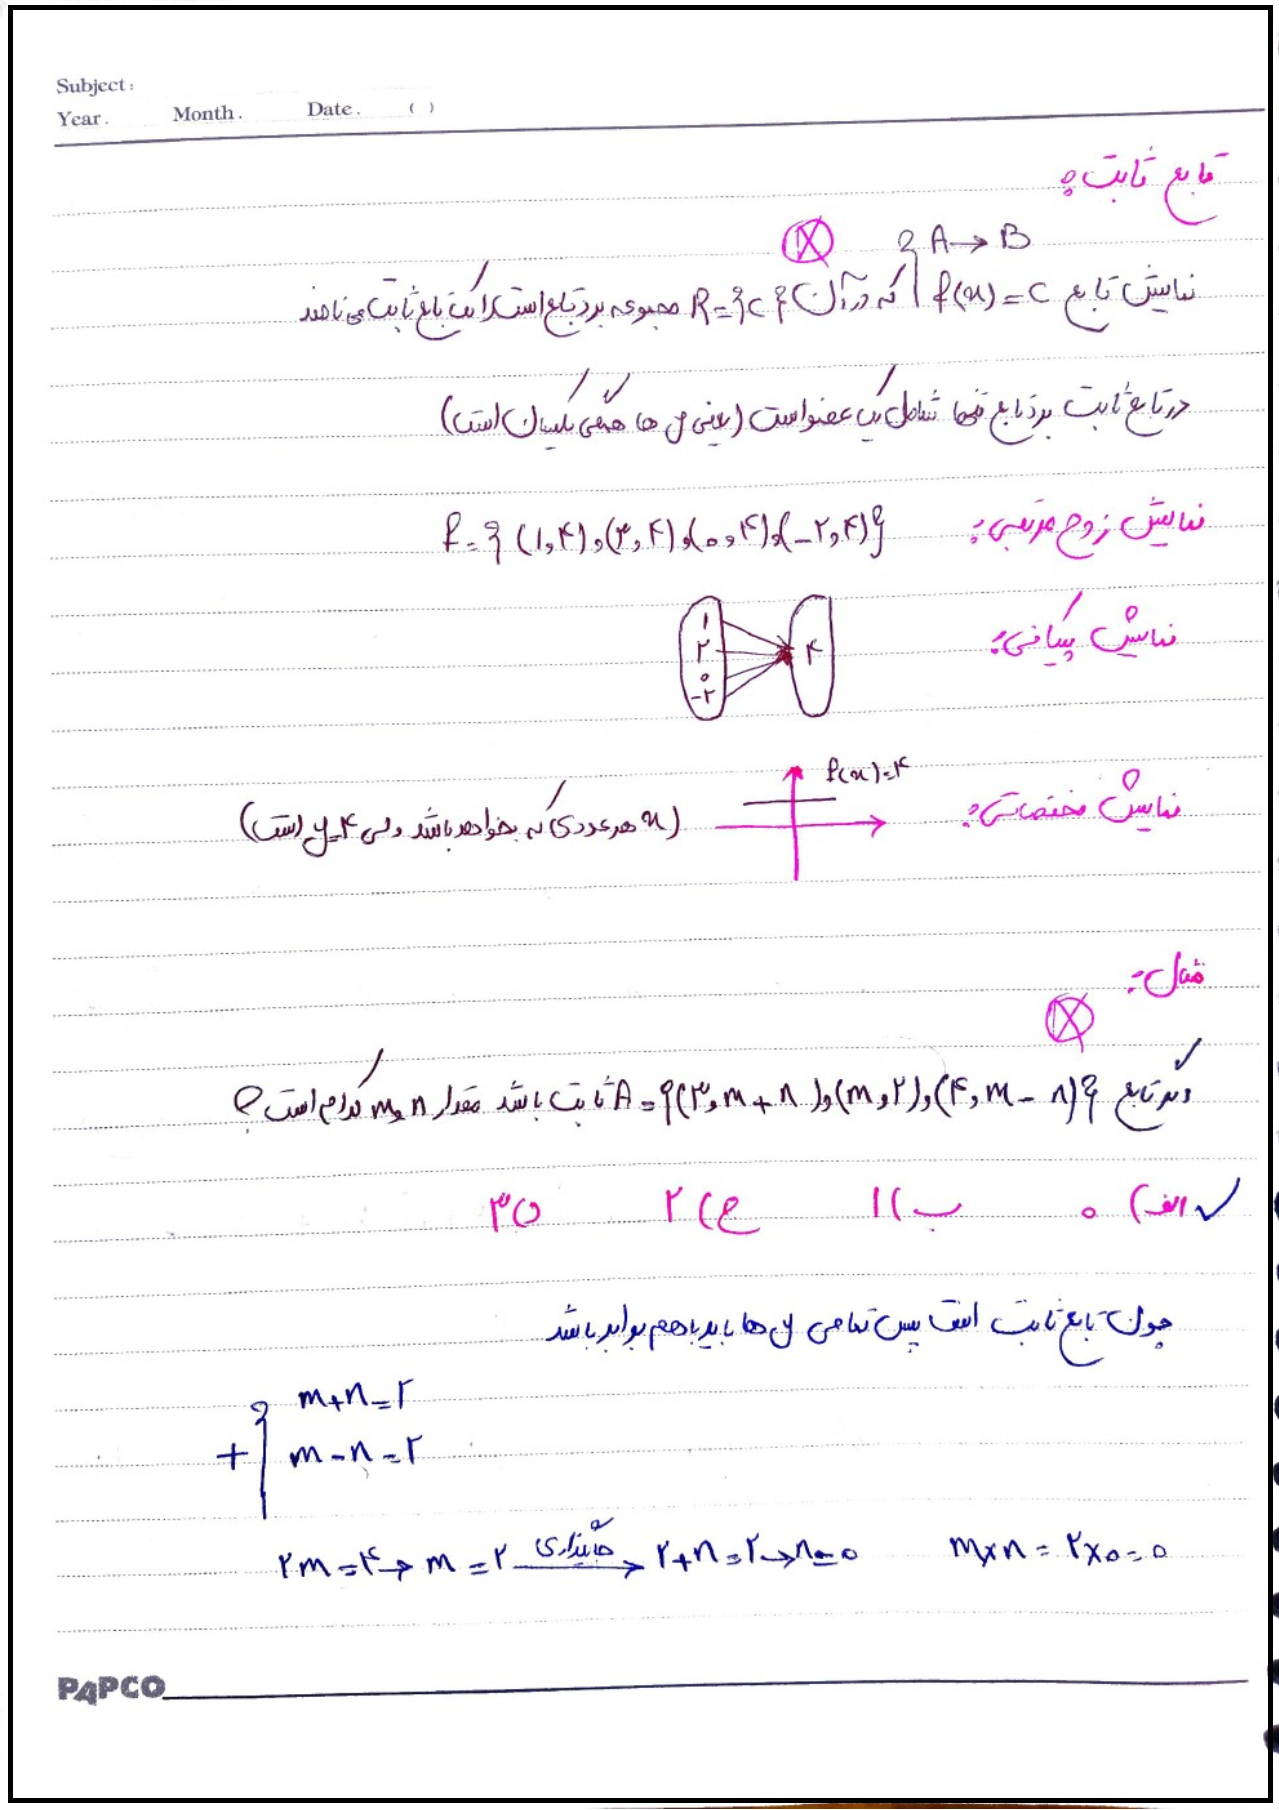 Subject:
Year. Month. Date. ( )
تابع ثابت:
A → B
نمایش تابع f(x) = c که در آن R = {c} مجموعه برد تابع است را یک تابع ثابت می نامند
در تابع ثابت برد تابع تنها شامل یک عضو است (یعنی y ها همگی یکسان است)
نمایش زوج مرتبی: f = { (۱,۴), (۳,۴), (۰,۴), (-۲,۴) }
نمایش پیکانی:
۱
۲ ۴
۰
-۲
f(x)=۴
نمایش مختصاتی: (x هر عددی که بخواهد باشد ولی y=۴ است)
مثال:
تابع A = {(۳, m + n), (m,۲), (۴, m - n)} ثابت باشد مقدار m, n کدام است؟
الف) ۰ ب) ۱ ج) ۲ د) ۳
چون تابع ثابت است پس تمامی y ها باید باهم برابر باشد
m+n=۲
+ m-n=۲
۲m=۴ → m=۲ جایگذاری → ۲+n=۲ → n=۰ m×n = ۲×۰=۰
PAPCO